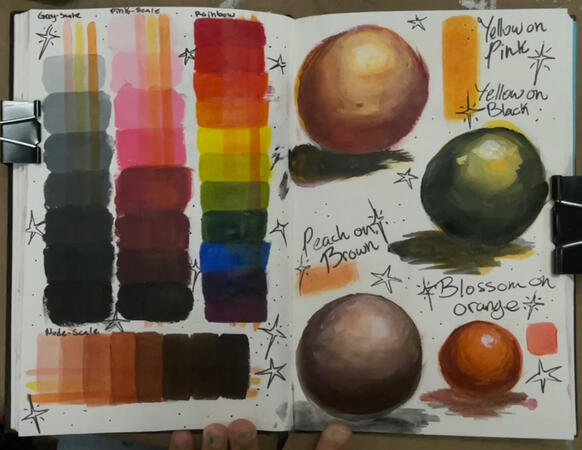 Gray-Scale
Pink-Scale
Rainbow
Nude-Scale
Yellow on
Pink
Yellow on
Black
Peach on
Brown
Blossom on
orange